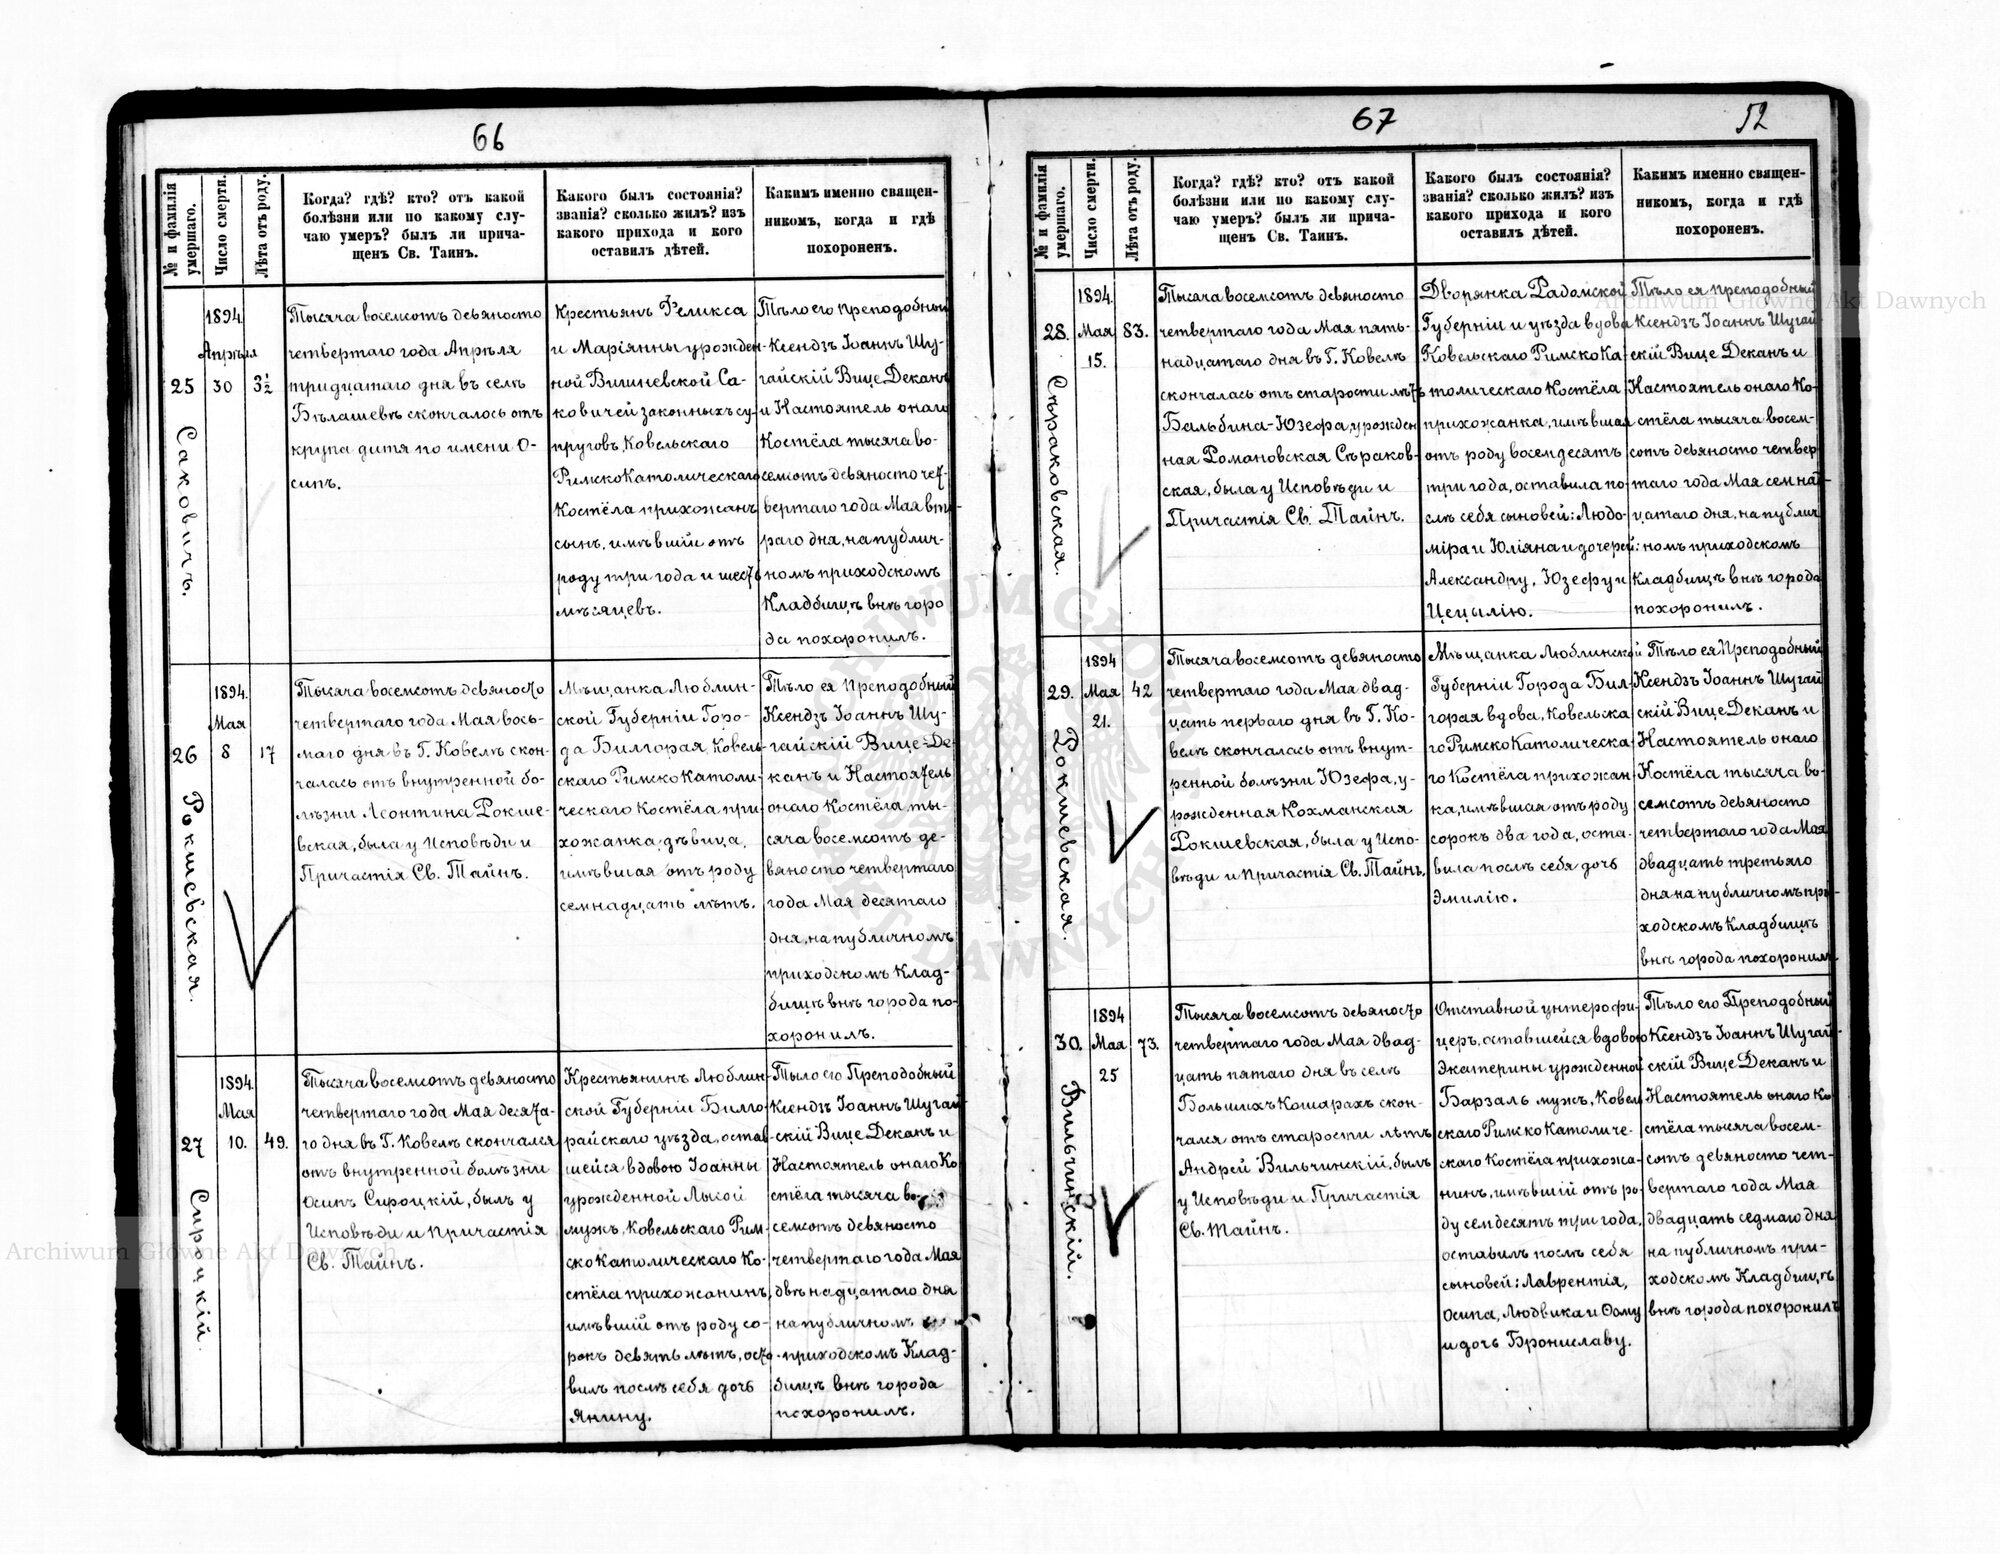 66
№ и фамилія умершаго.
Число смерти.
Лѣта отъ роду.
Когда? гдѣ? кто? отъ какой
болѣзни или по какому слу-
чаю умеръ? былъ ли прича-
щенъ Св. Таинъ.
Какого былъ состоянія?
званія? сколько жилъ? изъ
какого прихода и кого
оставилъ дѣтей.
Какимъ именно священ-
никомъ, когда и гдѣ
похороненъ.
25
Саковичъ.
1894
Апрѣля
30
3½
Тысяча восемсотъ девяносто
четвертаго года Апрѣля
тридцатаго дня въ селѣ
Бѣлашевѣ скончалось отъ
крупа дитя по имени О-
сипъ.
Крестьянъ Феликса
и Маріянны урожден-
ной Вишневской Са-
ковичей законныхъ су-
пруговъ, Ковельскаго
РимскоКатолическаго
Костёла прихожанъ
сынъ, имѣвшій отъ
роду три года и шесть
мѣсяцевъ.
Тѣло его преподобный
Ксендзъ Іоаннъ Шу-
гайскій Вице Деканъ
и Настоятель онаго
Костёла тысяча во-
семсотъ девяносто чет-
вертаго года Мая вто-
раго дня, на публич-
номъ приходскомъ
Кладбищѣ внѣ горо
да похоронилъ.
26
Рокшевская.
1894.
Мая
8
17
Тысяча восемсотъ девяносто
четвертаго года Мая вось-
маго дня въ Г. Ковелѣ скон-
чалась отъ внутренной бо-
лѣзни Леонтина Рокше-
вская, была у Исповѣди и
Причастія Св. Тайнъ.
Мѣщанка Люблин-
ской Губерніи Горо-
да Билгорая, Ковель-
скаго Римско Католи-
ческаго Костёла при-
хожанка, дѣвица,
имѣвшая отъ роду
семнадцать лѣтъ.
Тѣло ея Преподобный
Ксендзъ Іоаннъ Шу-
гайскій Вице-Де-
канъ и Настоятель
онаго Костёла, ты-
сяча восемсотъ де-
вяносто четвертаго
года Мая десятаго
дня, на публичномъ
приходскомъ Клад-
бищѣ внѣ города по-
хоронилъ.
27
Сироцкій.
1894.
Мая
10.
49.
Тысяча восемсотъ девяносто
четвертаго года Мая десята-
го дня въ Г. Ковелѣ скончался
отъ внутренной болѣзни
Осипъ Сироцкій, былъ у
Исповѣди и Причастія
Св. Тайнъ.
Крестьянинъ Люблин-
ской Губерніи Билго-
райскаго уѣзда, остав-
шейся вдовою Іоанны
урожденной Лысой
мужъ, Ковельскаго Рим-
ско Католическаго Ко-
стёла прихожанинъ,
имѣвшій отъ роду со-
рокъ девять лѣтъ, оста-
вилъ послѣ себя дочь
Янину.
Тѣло его Преподобный
Ксендзъ Іоаннъ Шугай-
скій Вице Деканъ и
Настоятель онаго Ко
стёла тысяча во-
семсотъ девяносто
четвертаго года Мая
двѣнадцатаго дня
на публичномъ
приходскомъ Клад-
бищѣ внѣ города
похоронилъ.
67
52
№ и фамилія умершаго.
Число смерти.
Лѣта отъ роду.
Когда? гдѣ? кто? отъ какой
болѣзни или по какому слу-
чаю умеръ? былъ ли прича-
щенъ Св. Таинъ.
Какого былъ состоянія?
званія? сколько жилъ? изъ
какого прихода и кого
оставилъ дѣтей.
Какимъ именно священ-
никомъ, когда и гдѣ
похороненъ.
28.
Сѣраковская.
1894.
Мая
15.
83.
Тысяча восемсотъ девяносто
четвертаго года Мая пять-
надцатаго дня въ Г. Ковелѣ
скончалась отъ старости лѣтъ
Бальбина-Юзефа, урожден
ная Романовская Сѣраков-
ская, была у Исповѣди и
Причастія Св. Тайнъ.
Дворянка Радомской
Губерніи и уѣзда вдова
Ковельскаго Римско Ка-
толическаго Костёла
прихожанка, имѣвшая
отъ роду восемдесятъ
три года, оставила по-
слѣ себя сыновей: Людо-
міра и Юліяна и дочерей:
Александру, Юзефу и
Цецылію.
Тѣло ея преподобный
Ксендзъ Іоаннъ Шугай-
скій Вице Деканъ и
Настоятель онаго Ко-
стёла тысяча восем-
сотъ девяносто четвер
таго года Мая семнад-
цатаго дня, на публич
номъ приходскомъ
кладбищѣ внѣ города
похоронилъ.
29.
Рокшевская.
1894
Мая
21.
42
Тысяча восемсотъ девяносто
четвертаго года Мая двад-
цать перваго дня въ Г. Ко-
велѣ скончалась отъ внут-
ренной болѣзни Юзефа, у-
рожденная Кохманская
Рокшевская, была у Испо-
вѣди и Причастія Св. Тайнъ.
Мѣщанка Люблинской
Губерніи Города Бил-
горая вдова, Ковельска
го Римско Католическа-
го Костёла прихожан
ка, имѣвшая отъ роду
сорокъ два года, оста-
вила послѣ себя дочь
Эмилію.
Тѣло ея Преподобный
Ксендзъ Іоаннъ Шугай
скій Вице Деканъ и
Настоятель онаго
Костёла тысяча во-
семсотъ девяносто
четвертаго года Мая
двадцать третьяго
дня на публичномъ при-
ходскомъ Кладбищѣ
внѣ города похоронилъ
30.
Вильчинскій.
1894
Мая
25
73.
Тысяча восемсотъ девяносто
четвертаго года Мая двад-
цать пятаго дня въ селѣ
Большихъ Кошарахъ скон-
чался отъ старости лѣтъ
Андрей Вильчинскій, былъ
у Исповѣди и Причастія
Св. Тайнъ.
Отставной унтерофи-
церъ, оставшейся вдовою
Экатерины урожденной
Барзаль мужъ, Ковел
скаго Римско Католиче-
скаго Костёла прихожа-
нинъ, имѣвшій отъ ро-
ду семдесятъ три года,
оставилъ послѣ себя
сыновей: Лаврентія,
Осипа, Людвика и Ѳому
и дочь Брониславу.
Тѣло его Преподобный
Ксендзъ Іоаннъ Шугай-
скій Вице Деканъ и
Настоятель онаго Ко
стёла тысяча восем-
сотъ девяносто чет-
вертаго года Мая
двадцать седмаго дня
на публичномъ при-
ходскомъ Кладбищѣ
внѣ города похоронилъ
Archiwum Główne Akt Dawnych
Archiwum Główne Akt Dawnych
ARCHIWUM GŁÓWNE AKT DAWNYCH